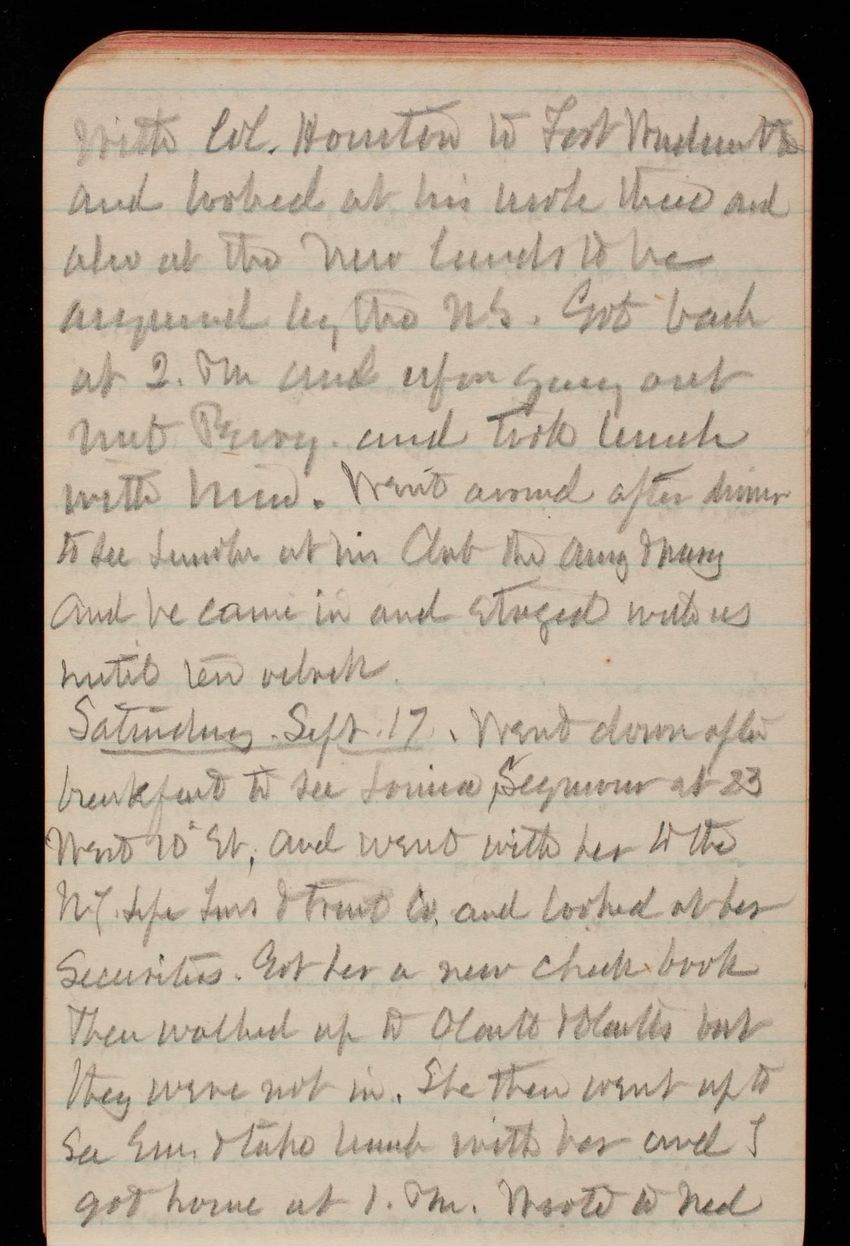 with Col. Houston to Fort Wadsworth
and looked at his work there and
also at the new lands to be
acquired by the US. Got back
at 2. PM and upon going out
met Percy. and took lunch
with him. Went around after dinner
to see at his Club the Army & Navy
and he came in and stayed with us
until ten oclock.
Saturday. Sept. 17. Went down after
breakfast to see Louisa Seymour at 23
West 10" St, and went with her to the
NY. Life Ins & Trust Co, and looked at her
Securities. Got her a new check book
Then walked up to & but
they were not in. She then went up to
see Em. & take lunch with her and I
got home at 1. PM. Wrote to Ned